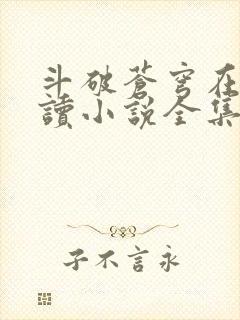 斗破蒼穹在
讀小說全集
子不言永